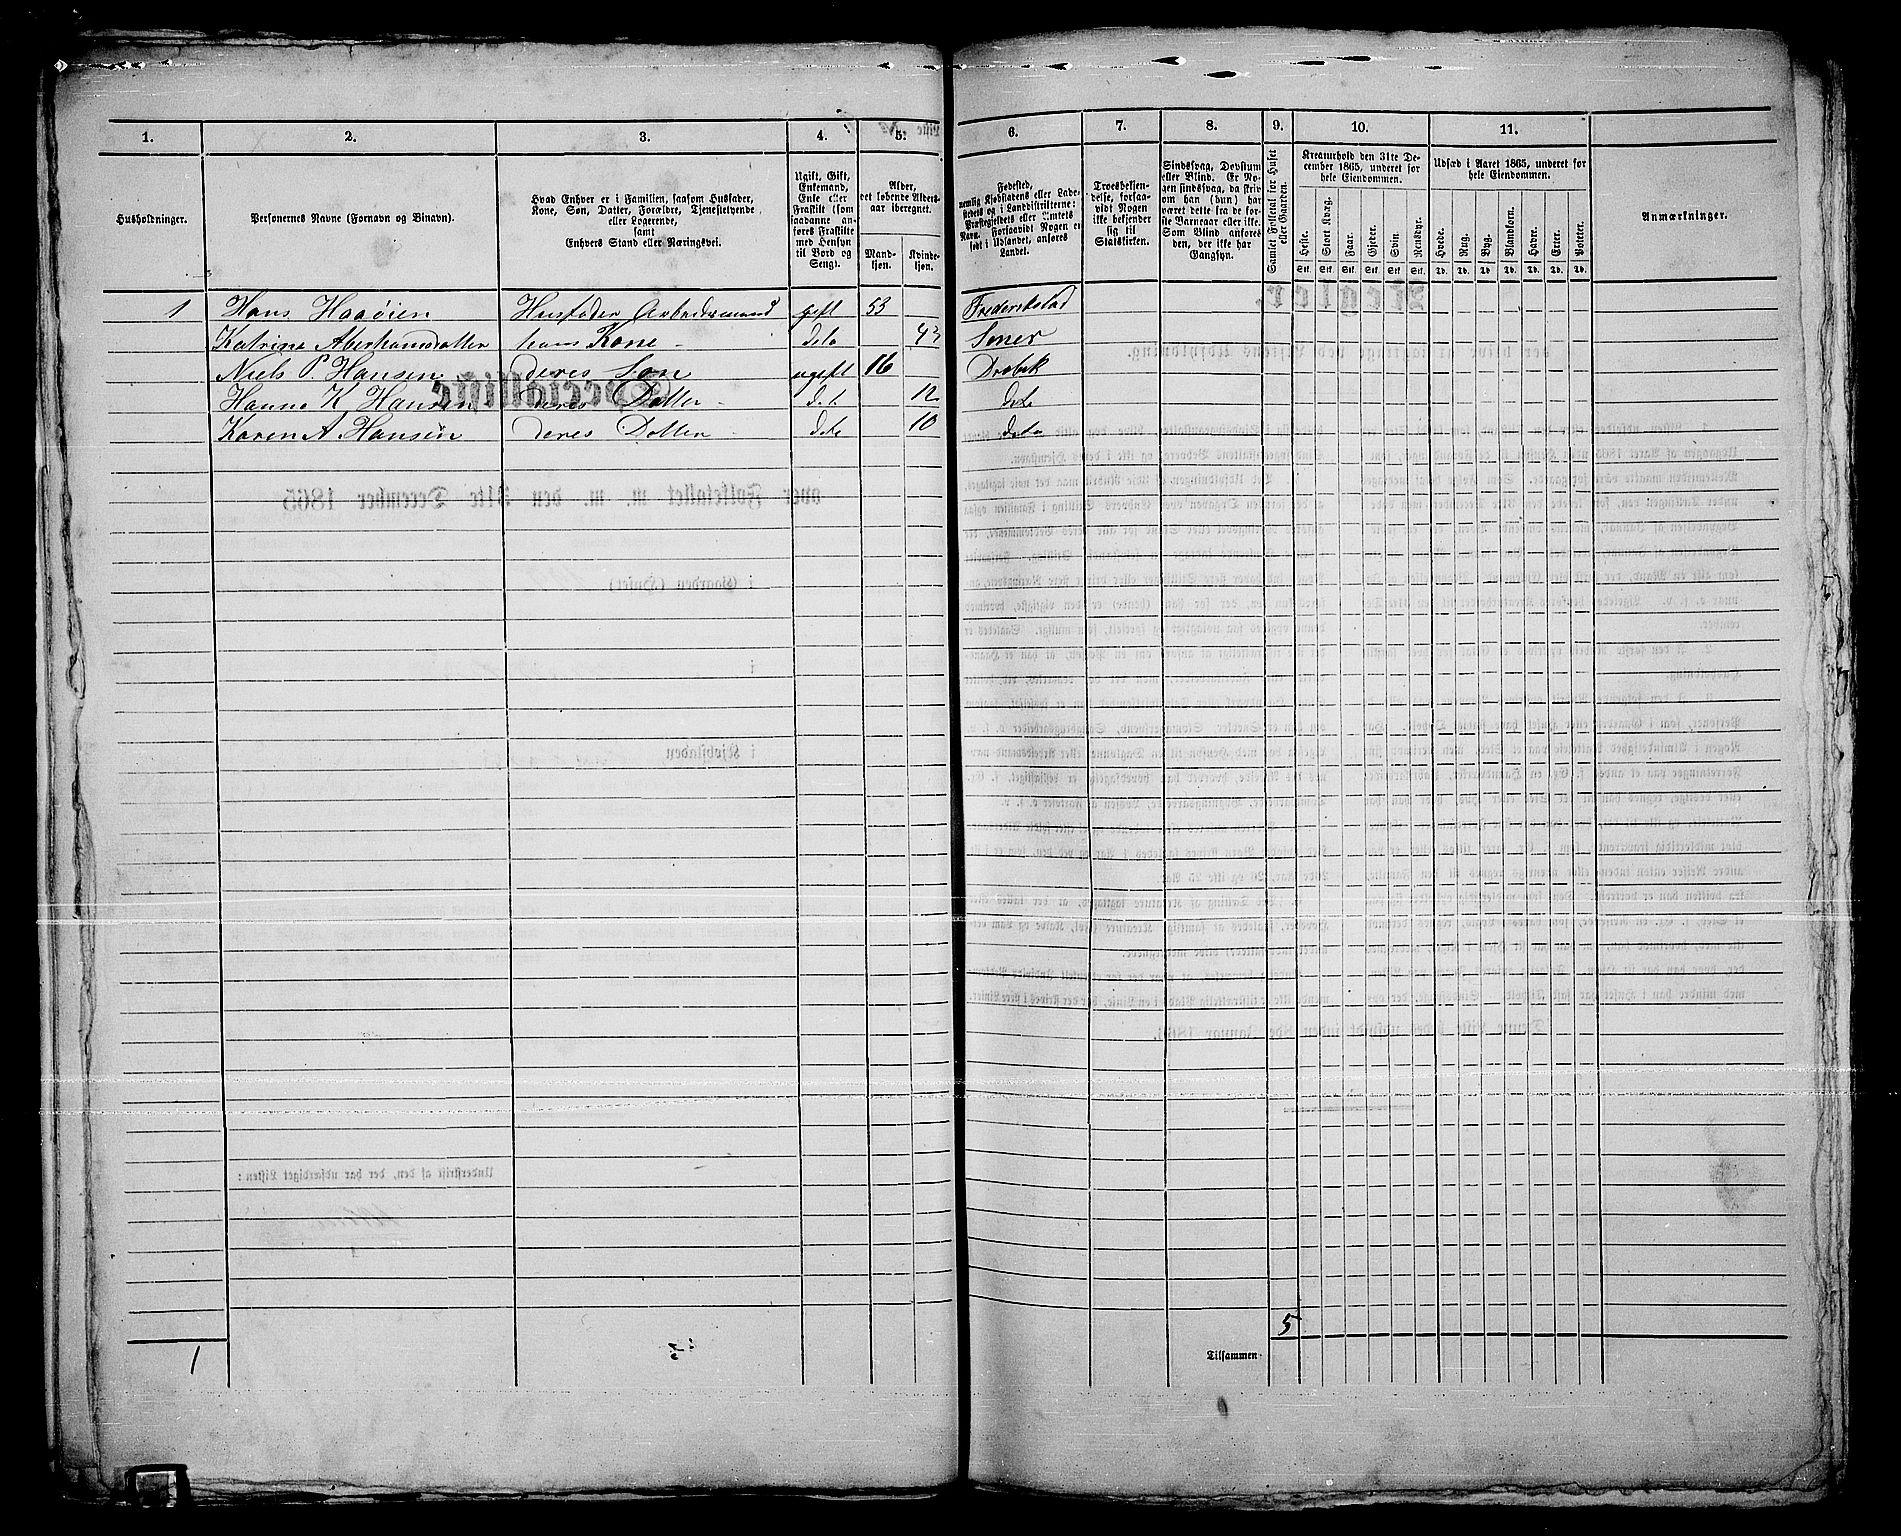 1. 2. 3. 4. 5. 6. 7. 8. 9. 10. 11.
Husholdninger.
Personernes Navne (Fornavn og Binavn).
Hvad Enhver er i Familien, saasom Husfader,
Kone, Søn, Datter, Forældre, Tjenestetyende
eller Logerende,
samt
Enhvers Stand eller Næringsvei.
Ugift, Gift,
Enkemand,
Enke eller
Fraskilt (som
saadanne an-
føres Fraskilte
med Hensyn
til Bord og
Seng).
Alder,
det løbende Alders-
aar iberegnet.
Mand-
kjøn.
Kvinde-
kjøn.
Fødested,
nemlig Kjøbstadens eller Lade-
stedets og i Landdistrikterne:
Præstegjeldets eller Amtets
Navn. Forsaavidt Nogen er
født i Udlandet, anføres
Landet.
Troesbekjen-
delse, forsaa-
vidt Nogen
ikke bekjender
sig til
Statskirken.
Sindssvag, Døvstum
eller Blind. Er No-
gen sindssvag, da skriv
om han (hun) har
været dette fra de før-
ste Barneaar eller ikke.
Som Blind anføres
den, der ikke har
Gangsyn.
Samlet Folketal for Huset
eller Gaarden.
Kreaturhold den 31te De-
cember 1865, underet for
hele Eiendommen.
Heste. Stort Kvæg. Faar. Gjeder. Svin. Rensdyr.
Stk. Stk. Stk. Stk. Stk. Stk.
Udsæd i Aaret 1865, underet for
hele Eiendommen.
Hvede. Rug. Byg. Blandkorn. Havre. Erter. Poteter.
Td. Td. Td. Td. Td. Td. Td.
Anmærkninger.
1 Hans Haaøien Husfader Arbeidsmand gift 53 Frederikstad
Katrine Aberhamsdatter hans Kone dito 43 Soner
Niels P. Hansen deres Søn ugift 16 Drøbak
Hanne K Hansen deres Datter dito 12 dito
Karen A Hansen deres Datter dito 10 dito
5
1
Tilsammen